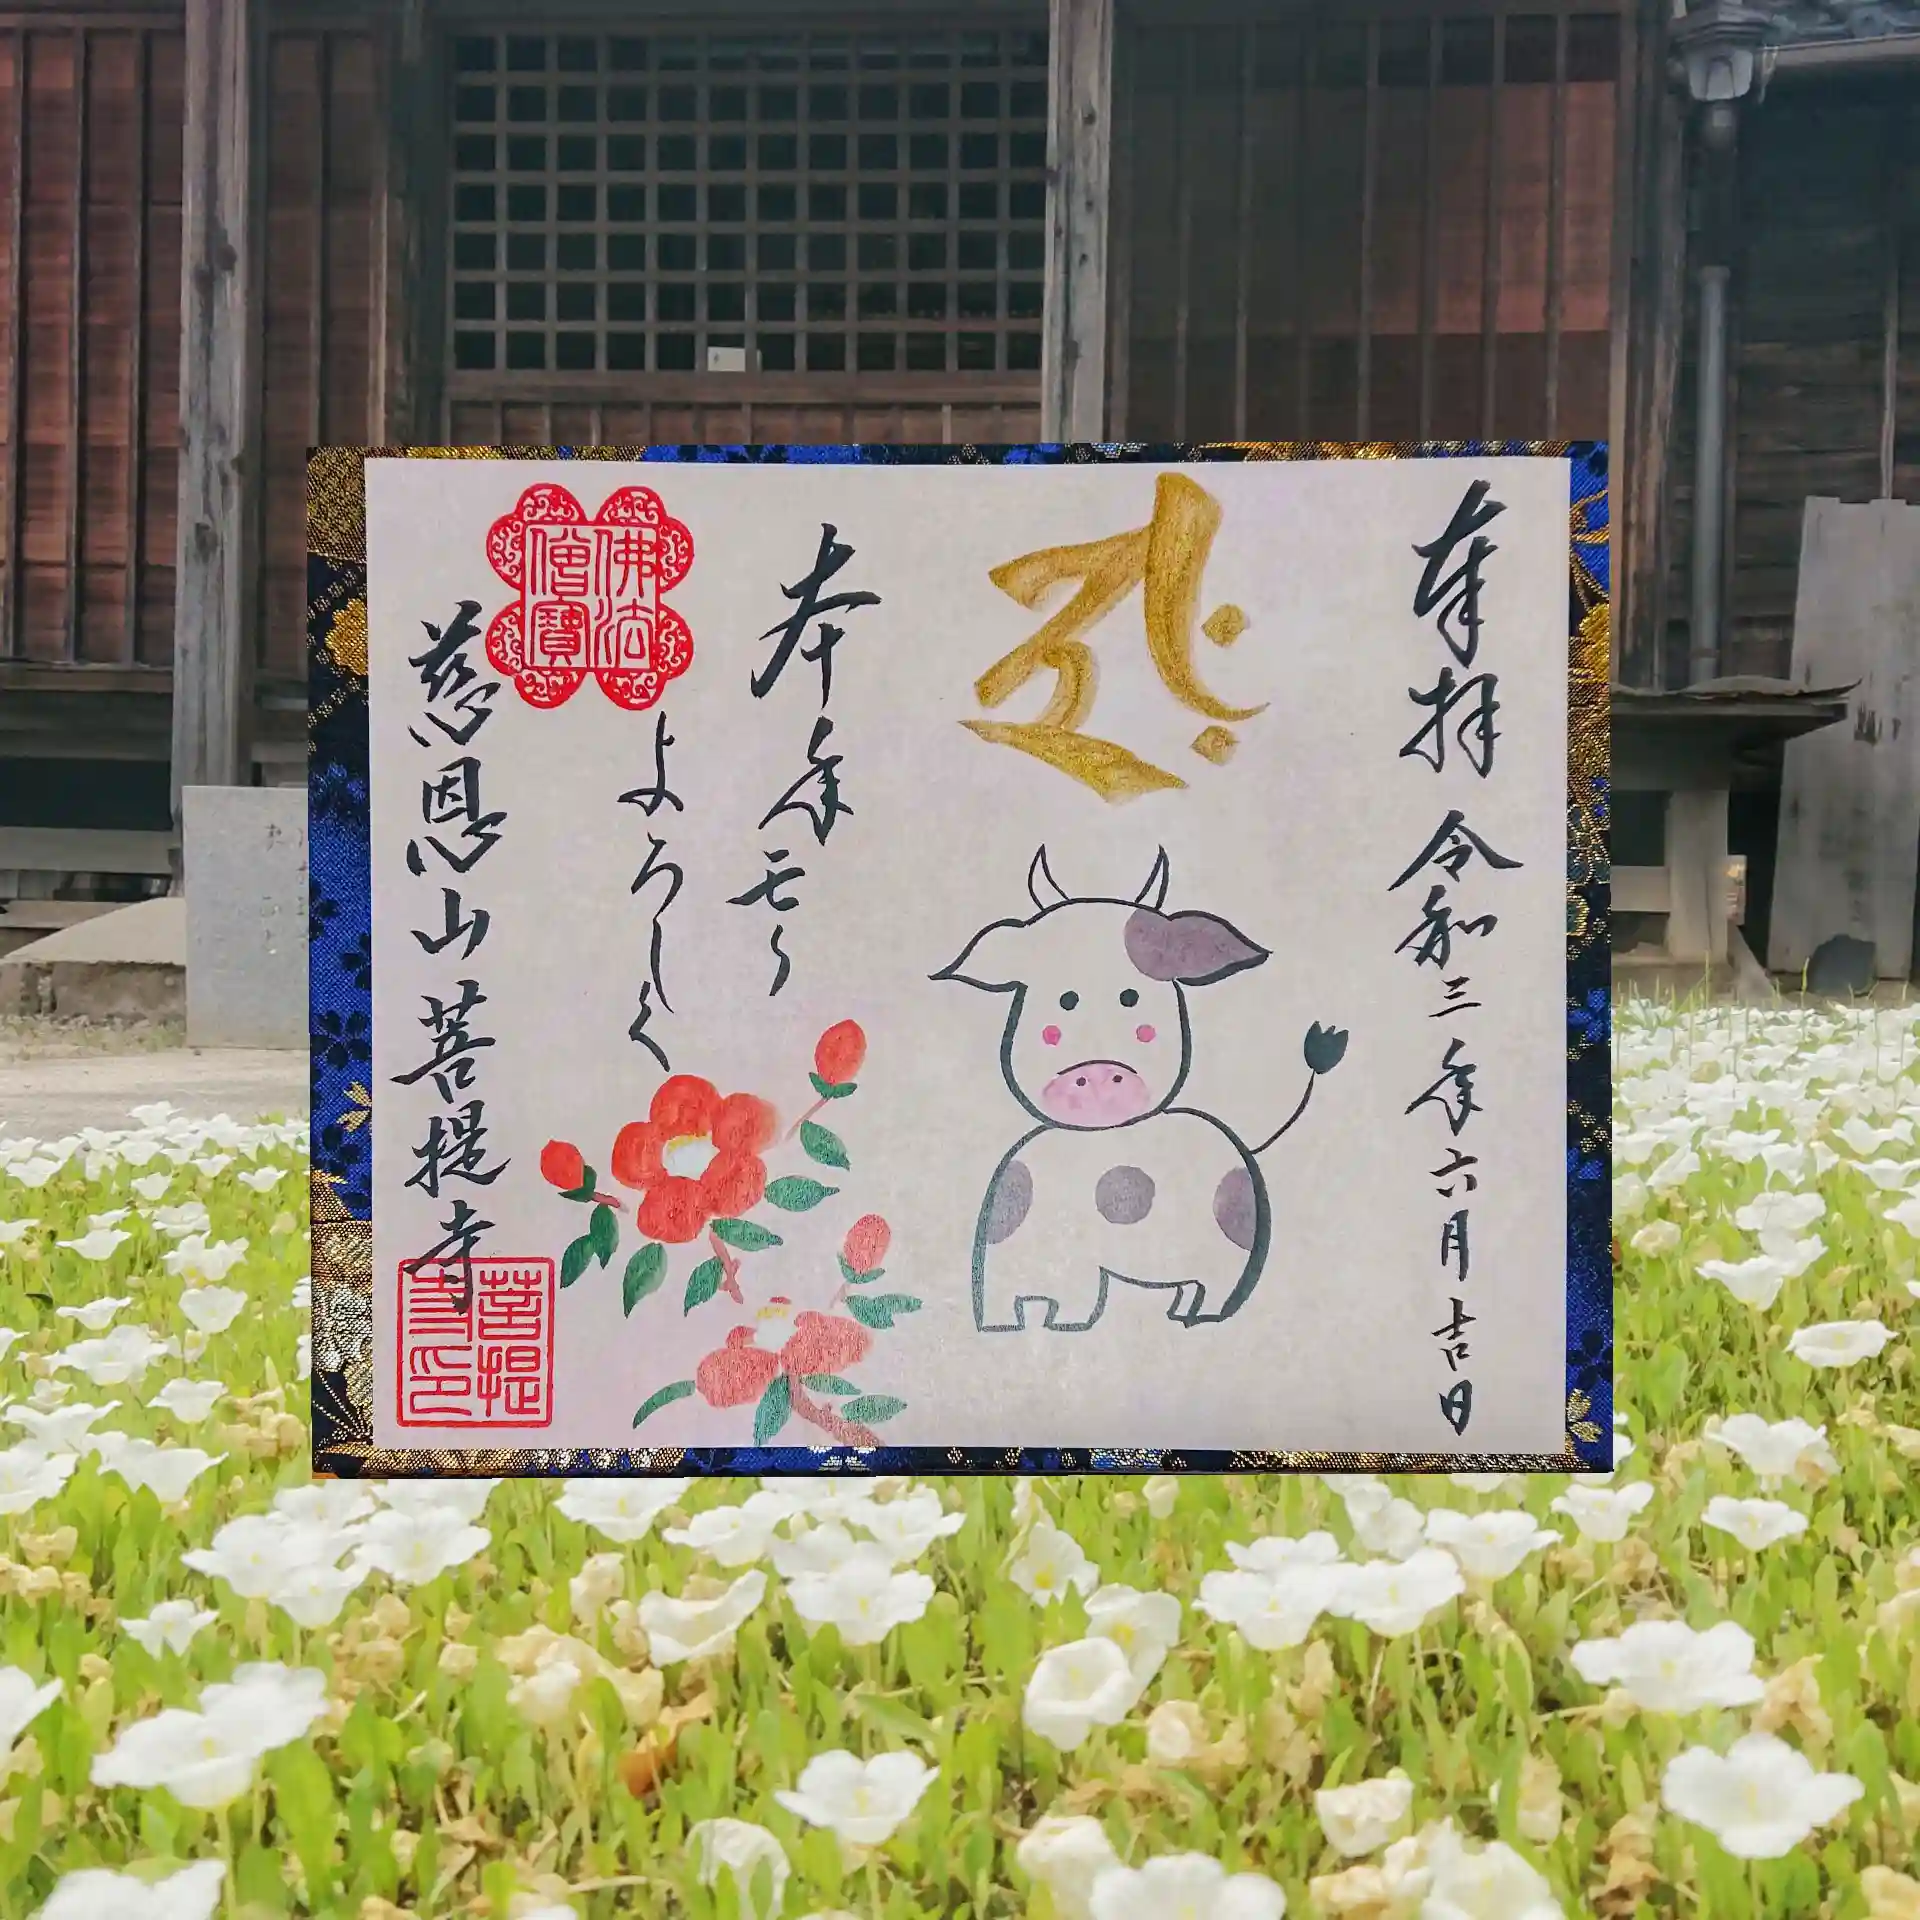 奉拝 令和三年六月吉日
本年モ
よろしく
佛法
僧寶
慈恩山菩提寺
菩提
寺印